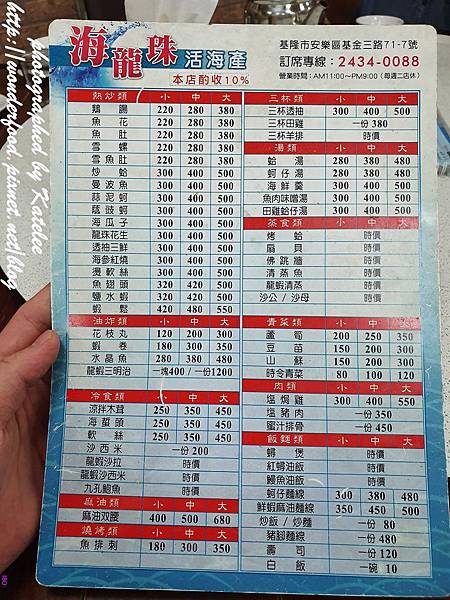 海龍珠 活海產
本店酌收10%
基隆市安樂區基金三路71-7號
訂席專線：2434-0088
營業時間：AM11:00~PM9:00（每週二店休）
熱炒類 小 中 大
鵝腸 220 280 380
魚花 220 280 380
魚肚 220 280 380
雪螺 220 280 380
雪魚肚 220 280 380
炒蛤 300 400 500
曼波魚 300 400 500
蒜泥蚵 300 400 500
蔭豉蚵 300 400 500
海瓜子 300 400 500
龍珠花生 300 400 500
透抽三鮮 300 400 500
海參紅燒 300 400 500
燙軟絲 300 400 500
魚翅頭 320 420 520
鹽水蝦 320 420 520
蝦鬆 420 480 550
油炸類 小 中 大
花枝丸 120 200 300
蝦卷 180 300 350
水晶魚 280 380 480
龍蝦三明治 一塊400 / 一份1200
冷食類 小 中 大
涼拌木茸 250 350 450
海蜇頭 250 350 450
軟絲 250 350 450
沙西米 一份 200
龍蝦沙拉 時價
龍蝦沙西米 時價
九孔鮑魚 時價
麻油類 小 中 大
麻油双腰 400 500 680
燒烤類 小 中 大
魚排刺 180 300 350
三杯類 小 中 大
三杯透抽 300 400 500
三杯田雞 一份 380
三杯羊排 時價
湯類 小 中 大
蛤湯 280 380 480
蚵仔湯 280 380 480
海鮮羹 300 400 500
魚肉味噌湯 300 400 500
田雞蛤仔湯 300 400 500
蒸食類
烤蛤 時價
扇貝 時價
佛跳牆 時價
清蒸魚 時價
龍蝦清蒸 時價
沙公 / 沙母 時價
青菜類 小 中 大
蘆筍 200 250 350
豆苗 150 200 300
山蘇 150 200 300
時令青菜 80 100 120
肉類 小 中 大
塩焗雞 300 400 550
塩豬肉 一份 350
蜜汁排骨 一份 450
飯麵類 小 中 大
蟳煲 時價
紅蟳油飯 時價
鰻魚油飯 時價
蚵仔麵線 300 380 480
鮮蝦麻油麵線 350 450 500
炒飯 / 炒麵 一份 80
豬腳麵線 一份 480
壽司 一份 120
白飯 一碗 10
photographed by Kaelee
http://wonderfood.pixnet.net/blog